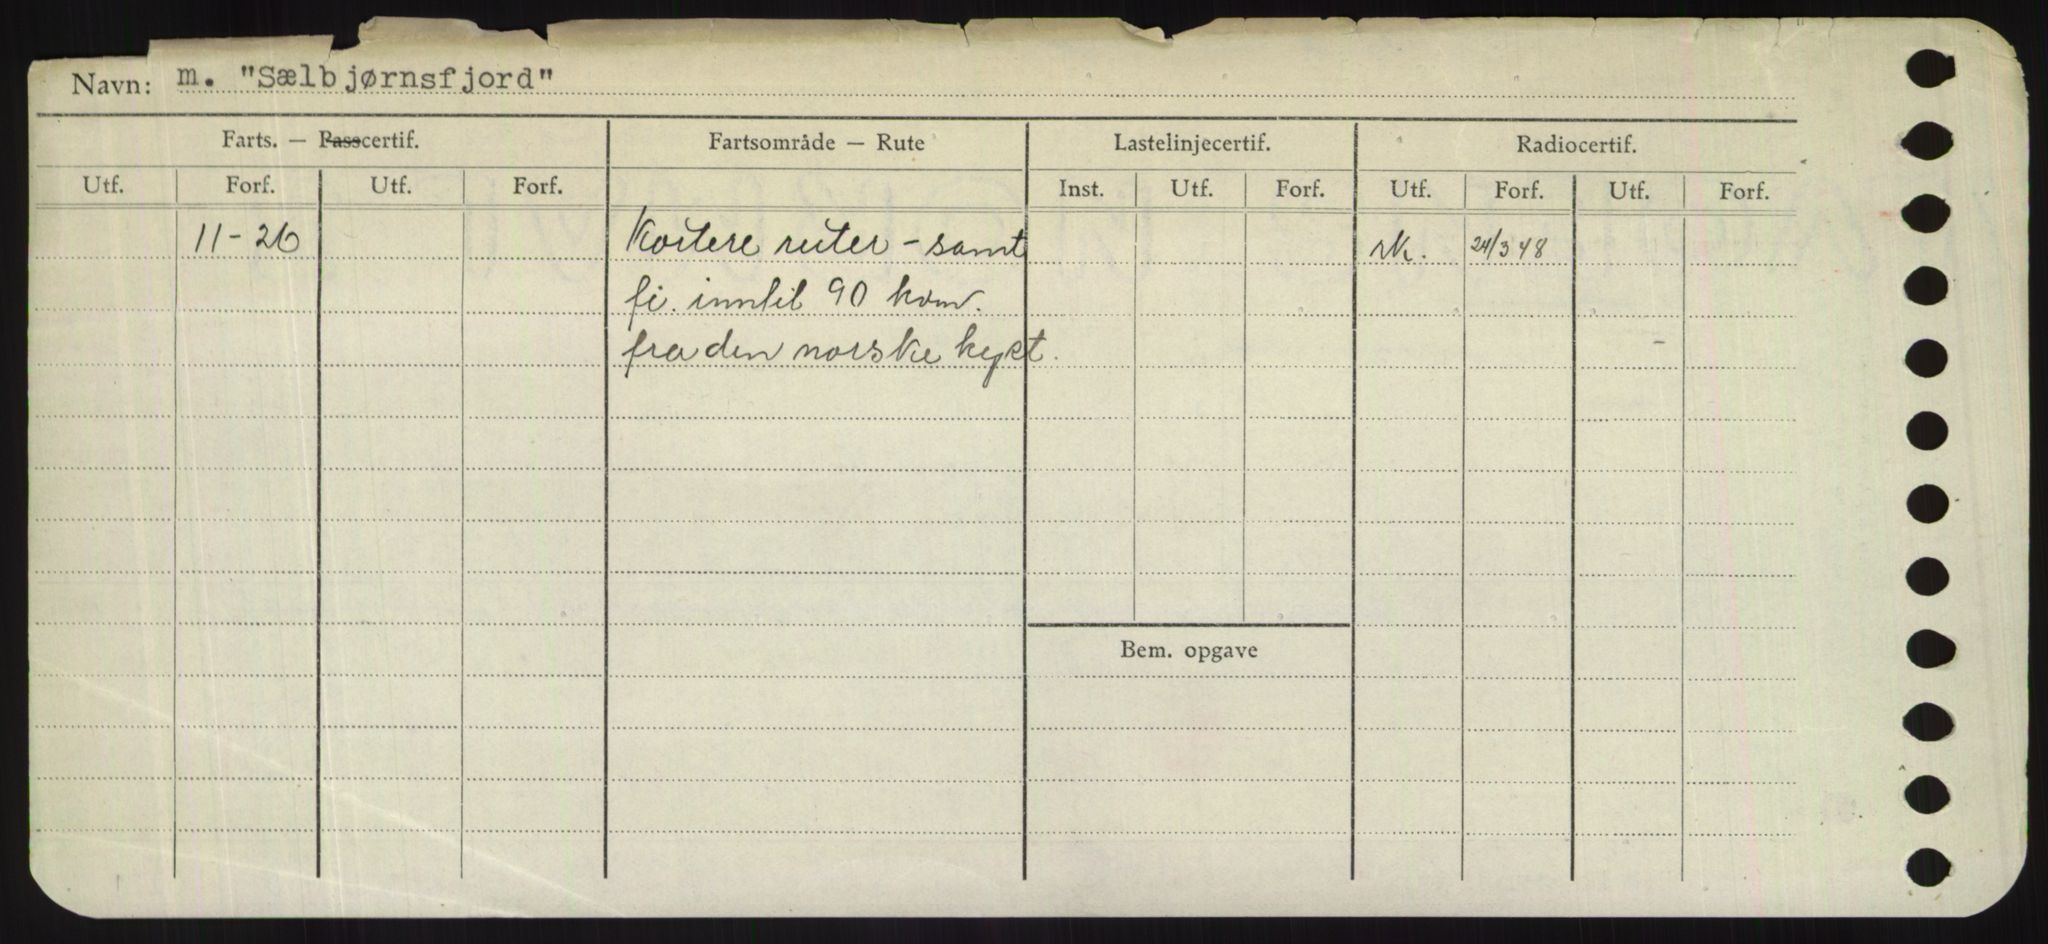 Navn: m. "Sælbjørnsfjord"
Farts. — Passcertif. Fartsområde — Rute Lastelinjecertif. Radiocertif.
Utf. Forf. Utf. Forf. Inst. Utf. Forf. Utf. Forf. Utf. Forf.
11-26 Kortere ruter - samt rk. 24/3 48
fi. inntil 90 kvm.
fra den norske kyst.
Bem. opgave